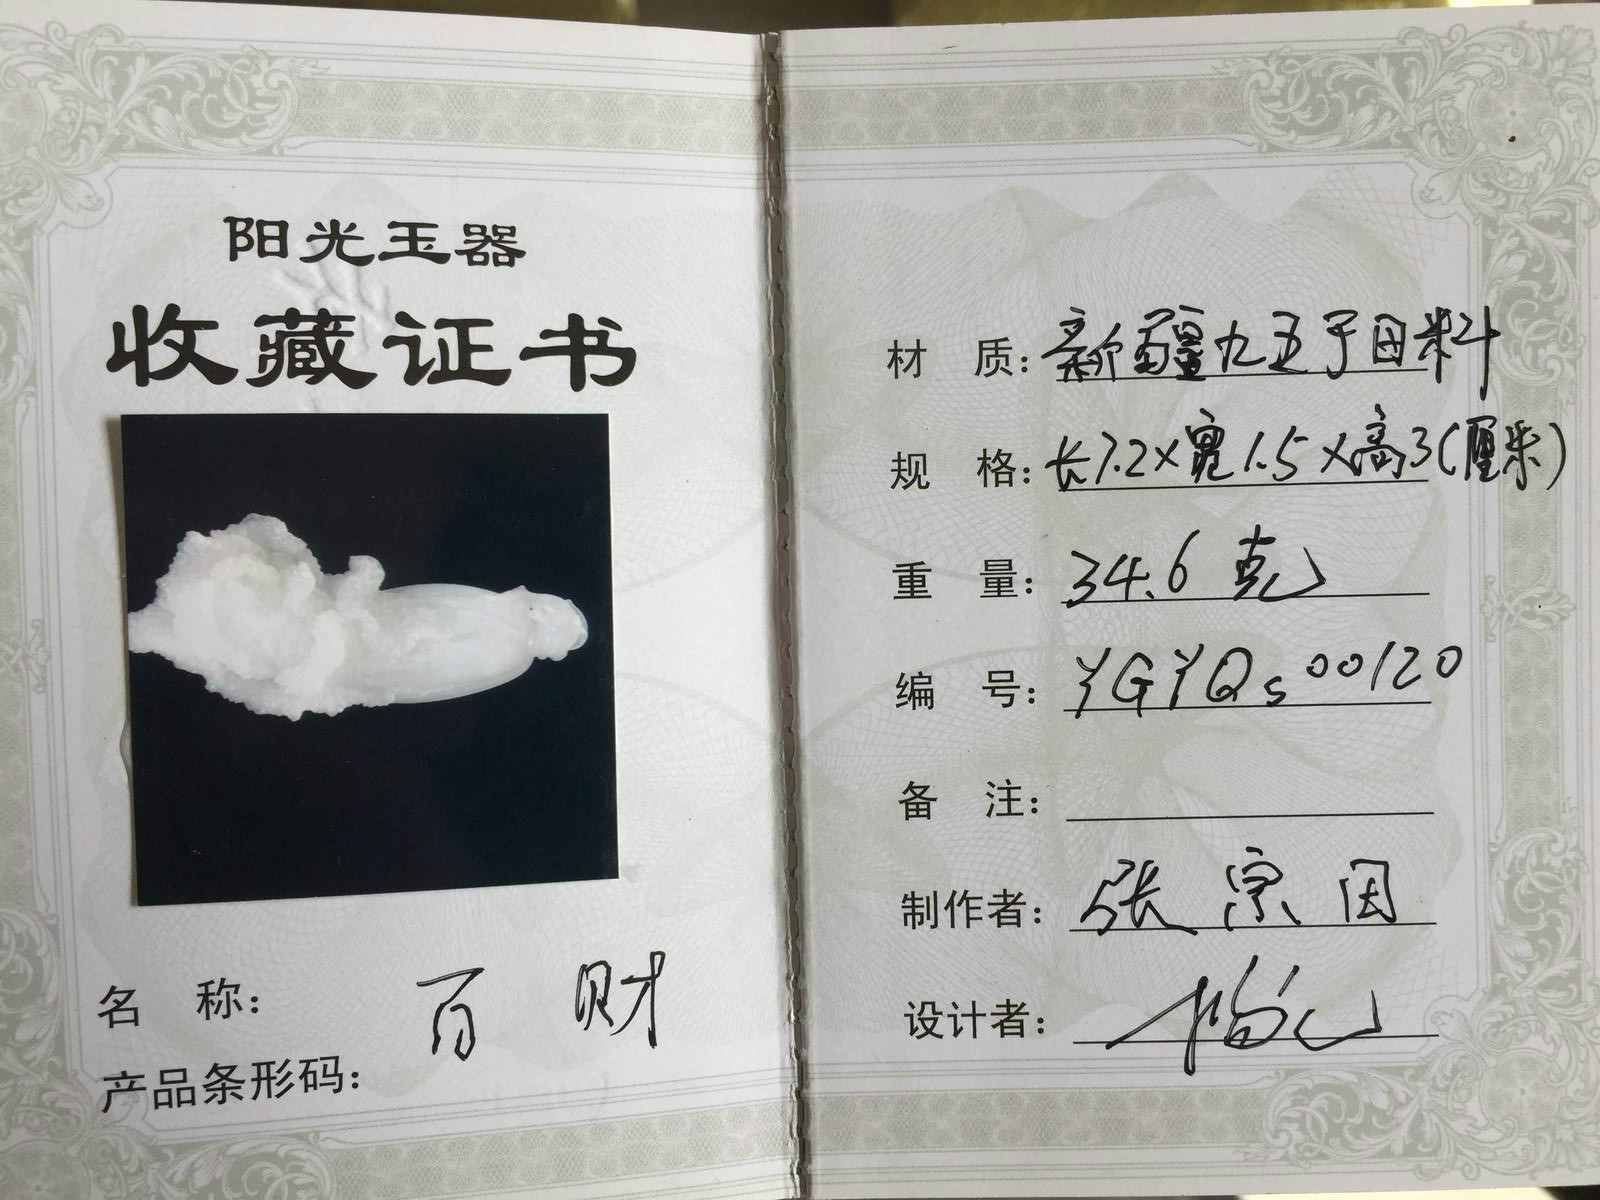 阳光玉器
收藏证书
名 称: 百 财
产品条形码:
材 质: 新疆九五于田料
规 格: 长7.2×宽1.5×高3(厘米)
重 量: 34.6 克
编 号: YGYQs00120
备 注:
制作者: 张宗因
设计者: